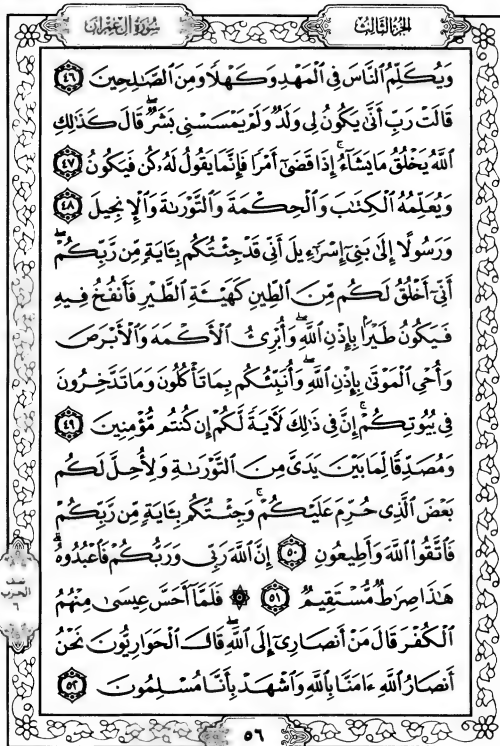 سُورَةُ آلِ عِمْرَانَ
الجُزْءُ الثَّالِثُ
وَيُكَلِّمُ النَّاسَ فِي الْمَهْدِ وَكَهْلًا وَمِنَ الصَّالِحِينَ ٤٦
قَالَتْ رَبِّ أَنَّىٰ يَكُونُ لِي وَلَدٌ وَلَمْ يَمْسَسْنِي بَشَرٌ ۖ قَالَ كَذَٰلِكِ
اللَّهُ يَخْلُقُ مَا يَشَاءُ ۚ إِذَا قَضَىٰ أَمْرًا فَإِنَّمَا يَقُولُ لَهُ كُن فَيَكُونُ ٤٧
وَيُعَلِّمُهُ الْكِتَٰبَ وَالْحِكْمَةَ وَالتَّوْرَىٰةَ وَالْإِنجِيلَ ٤٨
وَرَسُولًا إِلَىٰ بَنِي إِسْرَٰٓءِيلَ أَنِّي قَدْ جِئْتُكُم بِـَٔايَةٍ مِّن رَّبِّكُمْ ۖ
أَنِّي أَخْلُقُ لَكُم مِّنَ الطِّينِ كَهَيْـَٔةِ الطَّيْرِ فَأَنفُخُ فِيهِ
فَيَكُونُ طَيْرًا بِإِذْنِ اللَّهِ ۖ وَأُبْرِئُ الْأَكْمَهَ وَالْأَبْرَصَ
وَأُحْيِ الْمَوْتَىٰ بِإِذْنِ اللَّهِ ۖ وَأُنَبِّئُكُم بِمَا تَأْكُلُونَ وَمَا تَدَّخِرُونَ
فِي بُيُوتِكُمْ ۚ إِنَّ فِي ذَٰلِكَ لَـَٔايَةً لَّكُمْ إِن كُنتُم مُّؤْمِنِينَ ٤٩
وَمُصَدِّقًا لِّمَا بَيْنَ يَدَيَّ مِنَ التَّوْرَىٰةِ وَلِأُحِلَّ لَكُم
بَعْضَ الَّذِي حُرِّمَ عَلَيْكُمْ ۚ وَجِئْتُكُم بِـَٔايَةٍ مِّن رَّبِّكُمْ
فَاتَّقُوا اللَّهَ وَأَطِيعُونِ ٥٠ إِنَّ اللَّهَ رَبِّي وَرَبُّكُمْ فَاعْبُدُوهُ ۗ
هَٰذَا صِرَٰطٌ مُّسْتَقِيمٌ ٥١ ۞ فَلَمَّا أَحَسَّ عِيسَىٰ مِنْهُمُ
الْكُفْرَ قَالَ مَنْ أَنصَارِي إِلَى اللَّهِ ۖ قَالَ الْحَوَارِيُّونَ نَحْنُ
أَنصَارُ اللَّهِ ءَامَنَّا بِاللَّهِ وَاشْهَدْ بِأَنَّا مُسْلِمُونَ ٥٢
نصف
الحزب
٦
٥٦